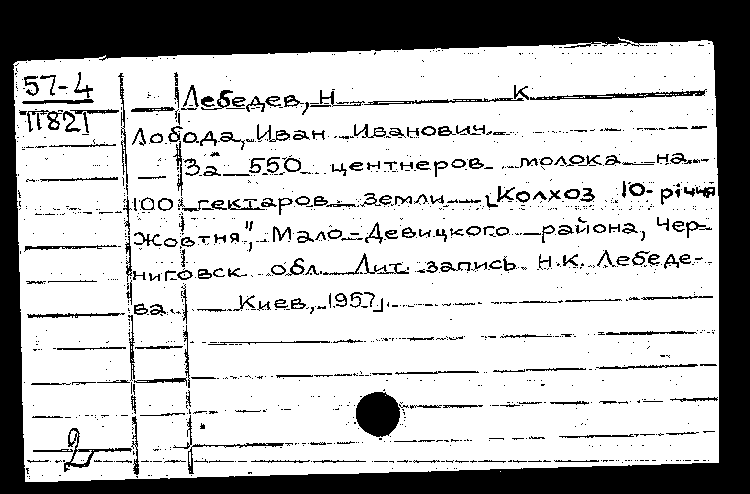 57-4
11821
Лебедев, Н К
Лобода, Иван Иванович
За 550 центнеров молока на
100 гектаров земли „Колхоз 10-річчя
Жовтня", Мало-Девицкого района, Чер-
ниговск обл. Лит. запись Н.К. Лебеде-
ва Киев, 1957.
2